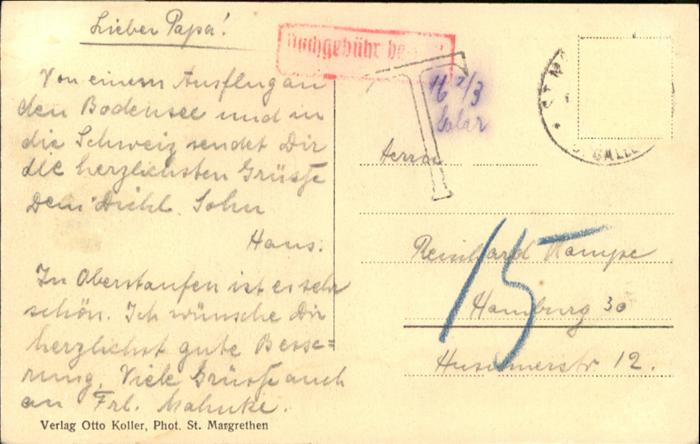 Lieber Papa!
Von einem Ausflug an
den Bodensee und in
die Schweiz sendet Dir
die herzlichsten Grüsse
Dein Sohn
Hans.
In Oberstaufen ist es sehr
schön. Ich wünsche Dir
herzlichst gute Besse=
rung. Viele Grüsse auch
an Frl. Mahnke.
Verlag Otto Koller, Phot. St. Margrethen
Nachgebühr
T
16 2/3
ST. M
GALLE
Herrn
Reinhard Kampe
15
Hamburg 30
Husumerstr 12.